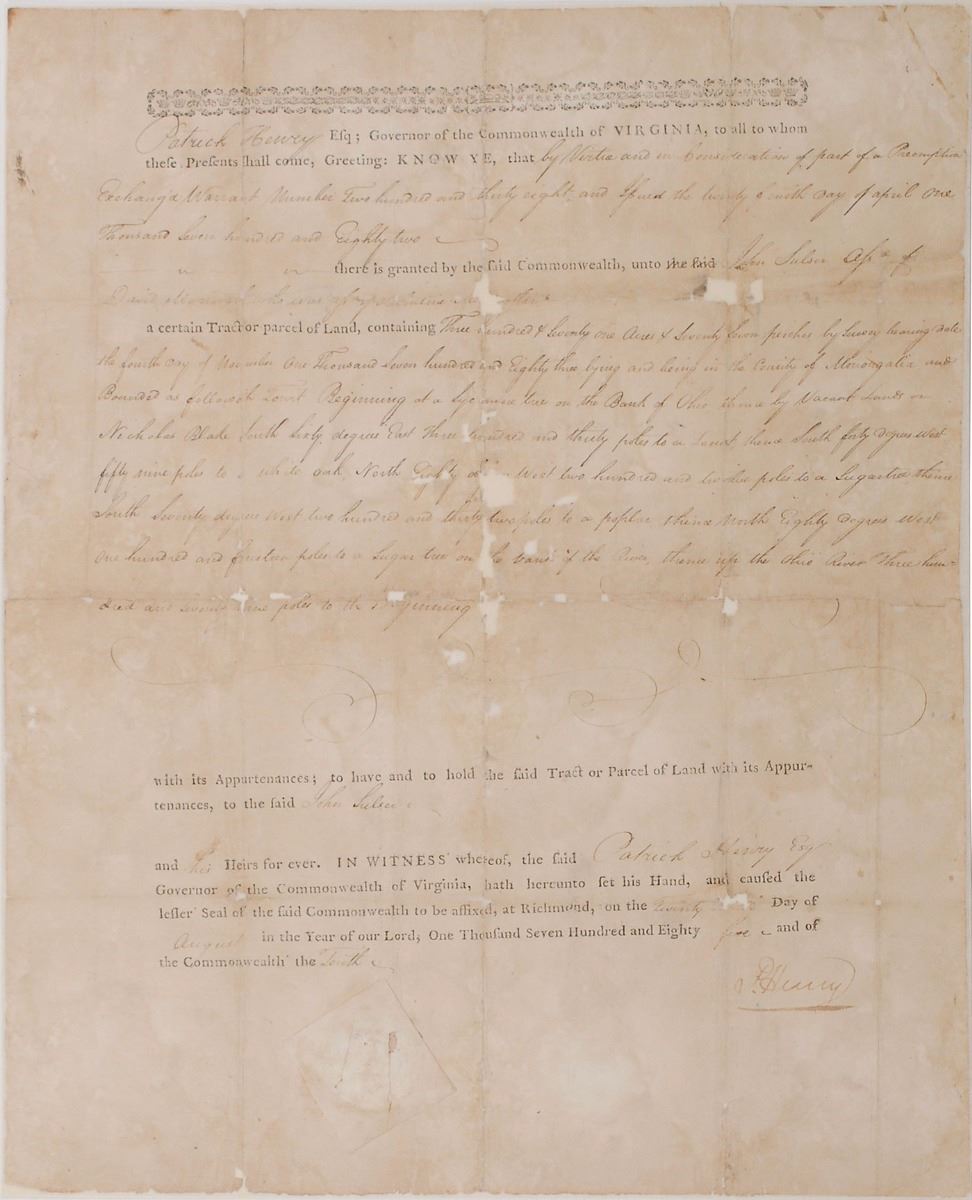 Patrick Henry Esq; Governor of the Commonwealth of VIRGINIA, to all to whom
theſe Preſents ſhall come, Greeting: KNOW YE, that by Virtue and in Consideration of part of a Preemption
Exchang'd Warrant Number Two hundred and thirty eight and Issued the twenty fourth Day of april One
Thousand Seven hundred and Eighty two
there is granted by the ſaid Commonwealth, unto the ſaid John Sulser Ass
David who was
a certain Tract or parcel of Land, containing Three hundred & Seventy one Acres & Seventy Seven perches by Survey bearing date
the fourth Day of November One Thousand Seven hundred and Eighty three lying and being in the County of Monongalia and
Bounded as followeth Towit Beginning at a Sycamore tree on the Bank of Ohio thence by Vacant Lands
Nicholas Blake South Sixty degrees East Three hundred and thirty poles to a thence South forty degrees West
fifty nine poles to a white oak, North Eighty West two hundred and twelve poles to a Sugartree thence
South Seventy degrees West two hundred and thirty two poles to a poplar thence North Eighty Degrees West
One hundred and poles to a Sugar tree on the bank of the River, thence up the Ohio River Three hun-
dred and Seventy poles to the Beginning
with its Appurtenances; to have and to hold the ſaid Tract or Parcel of Land with its Appur-
tenances, to the ſaid John Sulser
and his Heirs for ever. IN WITNESS whereof, the ſaid Patrick Henry Esq
Governor of the Commonwealth of Virginia, hath hereunto ſet his Hand, and cauſed the
leſſer Seal of the ſaid Commonwealth to be affixed, at Richmond, on the twenty Day of
August in the Year of our Lord, One Thouſand Seven Hundred and Eighty five and of
the Commonwealth the Tenth
P. Henry